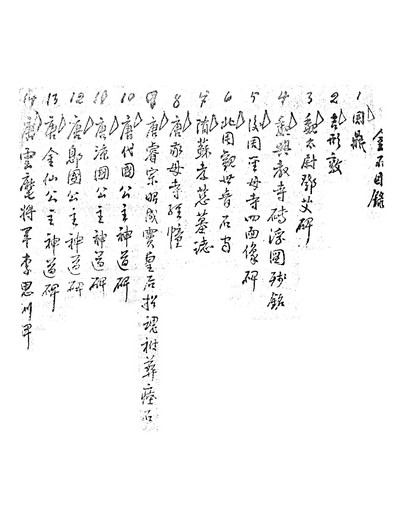 金石目錄
1 周鼎
2 形敦
3 魏太尉鄧艾碑
4 興教寺磚浮圖殘銘
5 後周聖母寺四面像碑
6 北周觀世音石
7 隋蘇孝慈墓誌
8 唐母寺經幢
9 唐睿宗昭成竇皇后招魂祔葬瘞石
10 唐代國公主神道碑
11 唐涼國公主神道碑
12 唐鄎國公主神道碑
13 唐金仙公主神道碑
14 唐雲麾將軍李思訓碑